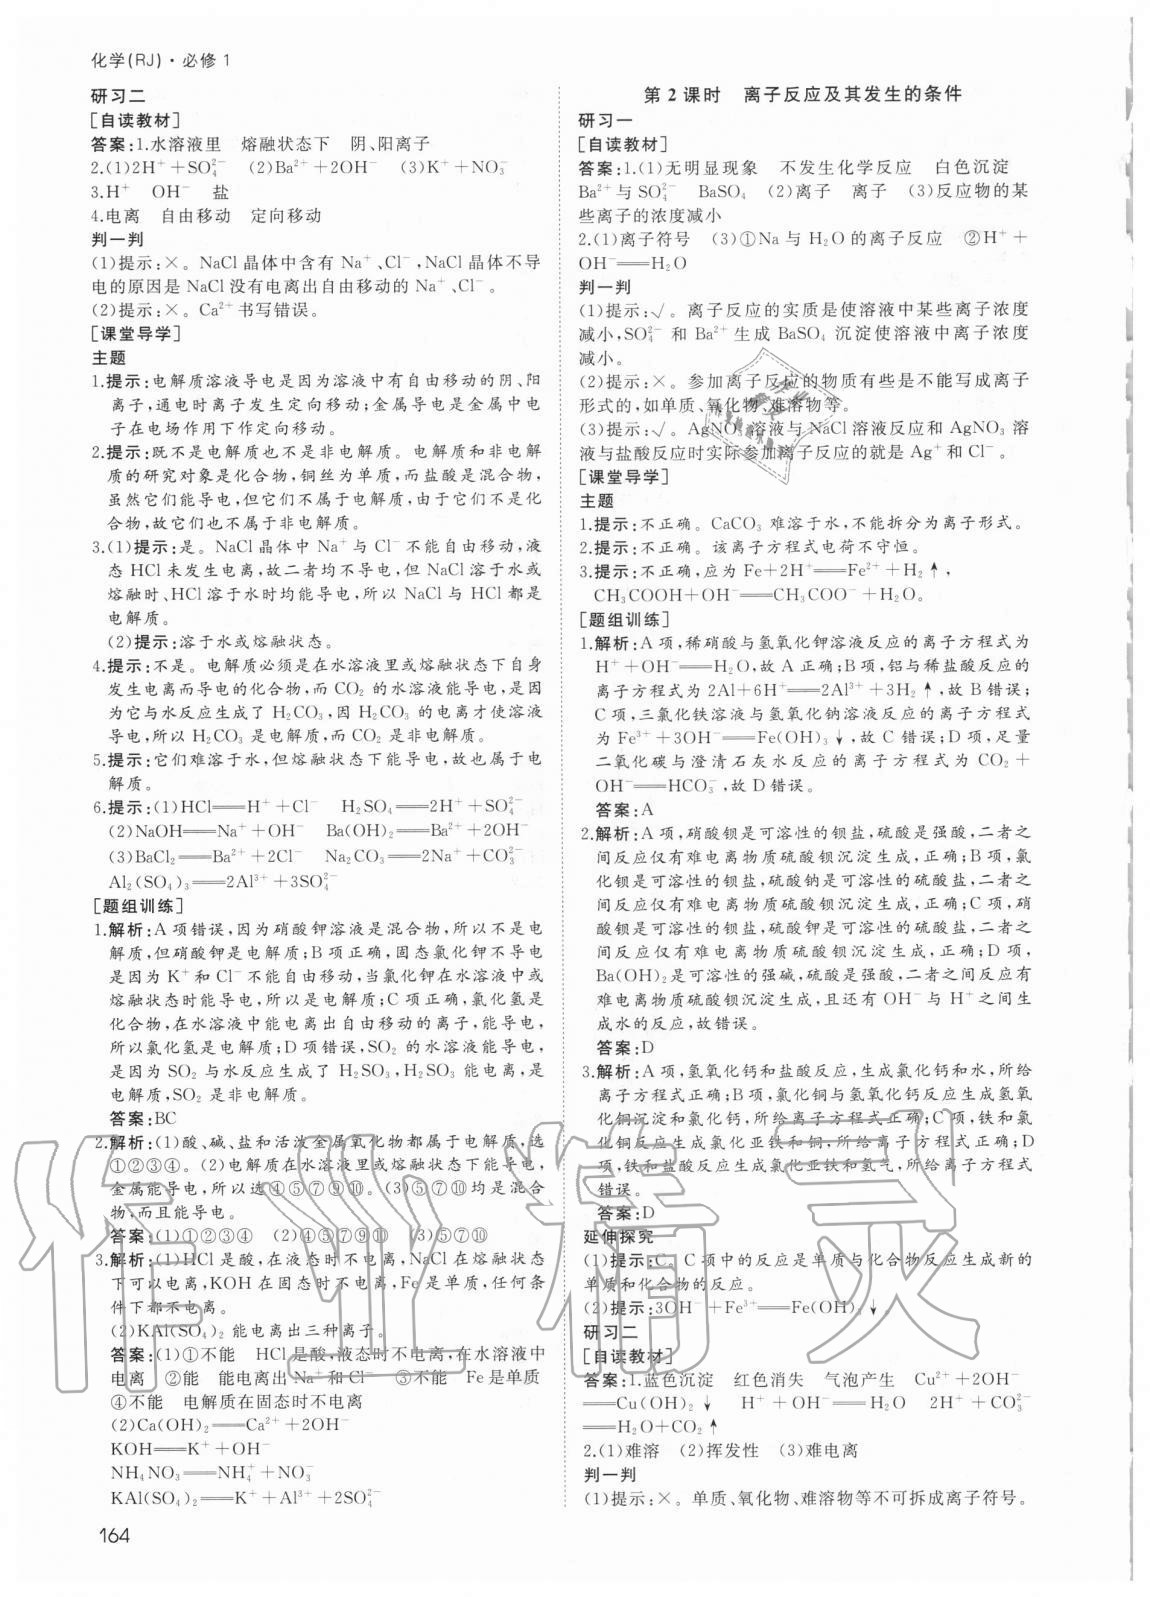 化学(RJ)·必修1
研习二
[自读教材]
答案:1.水溶液里　熔融状态下　阴、阳离子
2.(1)2H⁺+SO₄²⁻　(2)Ba²⁺+2OH⁻　(3)K⁺+NO₃⁻
3.H⁺　OH⁻　盐
4.电离　自由移动　定向移动
判一判
(1)提示:×。NaCl晶体中含有Na⁺、Cl⁻,NaCl晶体不导
电的原因是NaCl没有电离出自由移动的Na⁺、Cl⁻。
(2)提示:×。Ca²⁺书写错误。
[课堂导学]
主题
1.提示:电解质溶液导电是因为溶液中有自由移动的阴、阳
离子,通电时离子发生定向移动;金属导电是金属中电
子在电场作用下作定向移动。
2.提示:既不是电解质也不是非电解质。电解质和非电解
质的研究对象是化合物,铜丝为单质,而盐酸是混合物,
虽然它们能导电,但它们不属于电解质,由于它们不是化
合物,故它们也不属于非电解质。
3.(1)提示:是。NaCl晶体中Na⁺与Cl⁻不能自由移动,液
态HCl未发生电离,故二者均不导电,但NaCl溶于水或
熔融时、HCl溶于水时均能导电,所以NaCl与HCl都是
电解质。
(2)提示:溶于水或熔融状态。
4.提示:不是。电解质必须是在水溶液里或熔融状态下自身
发生电离而导电的化合物,而CO₂的水溶液能导电,是因
为它与水反应生成了H₂CO₃,因H₂CO₃的电离才使溶液
导电,所以H₂CO₃是电解质,而CO₂是非电解质。
5.提示:它们难溶于水,但熔融状态下能导电,故也属于电
解质。
6.提示:(1)HCl══H⁺+Cl⁻　H₂SO₄══2H⁺+SO₄²⁻
(2)NaOH══Na⁺+OH⁻　Ba(OH)₂══Ba²⁺+2OH⁻
(3)BaCl₂══Ba²⁺+2Cl⁻　Na₂CO₃══2Na⁺+CO₃²⁻
Al₂(SO₄)₃══2Al³⁺+3SO₄²⁻
[题组训练]
1.解析:A项错误,因为硝酸钾溶液是混合物,所以不是电
解质,但硝酸钾是电解质;B项正确,固态氯化钾不导电
是因为K⁺和Cl⁻不能自由移动,当氯化钾在水溶液中或
熔融状态时能导电,所以是电解质;C项正确,氯化氢是
化合物,在水溶液中能电离出自由移动的离子,能导电,
所以氯化氢是电解质;D项错误,SO₂的水溶液能导电,
是因为SO₂与水反应生成了H₂SO₃,H₂SO₃能电离,是
电解质,SO₂是非电解质。
答案:BC
2.解析:(1)酸、碱、盐和活泼金属氧化物都属于电解质,选
①②③④。(2)电解质在水溶液里或熔融状态下能导电,
金属能导电,所以选④⑤⑦⑨⑩。(3)⑤⑦⑩均是混合
物,而且能导电。
答案:(1)①②③④　(2)④⑤⑦⑨⑩　(3)⑤⑦⑩
3.解析:(1)HCl是酸,在液态时不电离,NaCl在熔融状态
下可以电离,KOH在固态时不电离,Fe是单质,任何条
件下都不电离。
(2)KAl(SO₄)₂能电离出三种离子。
答案:(1)①不能　HCl是酸,液态时不电离,在水溶液中
电离　②能　能电离出Na⁺和Cl⁻　③不能　Fe是单质
④不能　电解质在固态时不电离
(2)Ca(OH)₂══Ca²⁺+2OH⁻
KOH══K⁺+OH⁻
NH₄NO₃══NH₄⁺+NO₃⁻
KAl(SO₄)₂══K⁺+Al³⁺+2SO₄²⁻
164
第2课时　离子反应及其发生的条件
研习一
[自读教材]
答案:1.(1)无明显现象　不发生化学反应　白色沉淀
Ba²⁺与SO₄²⁻　BaSO₄　(2)离子　离子　(3)反应物的某
些离子的浓度减小
2.(1)离子符号　(3)①Na与H₂O的离子反应　②H⁺+
OH⁻══H₂O
判一判
(1)提示:√。离子反应的实质是使溶液中某些离子浓度
减小,SO₄²⁻和Ba²⁺生成BaSO₄沉淀使溶液中离子浓度
减小。
(2)提示:×。参加离子反应的物质有些是不能写成离子
形式的,如单质、氧化物、难溶物等。
(3)提示:√。AgNO₃溶液与NaCl溶液反应和AgNO₃溶
液与盐酸反应时实际参加离子反应的就是Ag⁺和Cl⁻。
[课堂导学]
主题
1.提示:不正确。CaCO₃难溶于水,不能拆分为离子形式。
2.提示:不正确。该离子方程式电荷不守恒。
3.提示:不正确,应为Fe+2H⁺══Fe²⁺+H₂↑,
CH₃COOH+OH⁻══CH₃COO⁻+H₂O。
[题组训练]
1.解析:A项,稀硝酸与氢氧化钾溶液反应的离子方程式为
H⁺+OH⁻══H₂O,故A正确;B项,铝与稀盐酸反应的
离子方程式为2Al+6H⁺══2Al³⁺+3H₂↑,故B错误;
C项,三氯化铁溶液与氢氧化钠溶液反应的离子方程式
为Fe³⁺+3OH⁻══Fe(OH)₃↓,故C错误;D项,足量
二氧化碳与澄清石灰水反应的离子方程式为CO₂+
OH⁻══HCO₃⁻,故D错误。
答案:A
2.解析:A项,硝酸钡是可溶性的钡盐,硫酸是强酸,二者之
间反应仅有难电离物质硫酸钡沉淀生成,正确;B项,氯
化钡是可溶性的钡盐,硫酸钠是可溶性的硫酸盐,二者之
间反应仅有难电离物质硫酸钡沉淀生成,正确;C项,硝
酸钡是可溶性的钡盐,硫酸钾是可溶性的硫酸盐,二者之
间反应仅有难电离物质硫酸钡沉淀生成,正确;D项,
Ba(OH)₂是可溶性的强碱,硫酸是强酸,二者之间反应有
难电离物质硫酸钡沉淀生成,且还有OH⁻与H⁺之间生
成水的反应,故错误。
答案:D
3.解析:A项,氢氧化钙和盐酸反应,生成氯化钙和水,所给
离子方程式正确;B项,氯化铜与氢氧化钙反应生成氢氧
化铜沉淀和氯化钙,所给离子方程式正确;C项,铁和氯
化铜反应生成氯化亚铁和铜,所给离子方程式正确;D
项,铁和盐酸反应生成氯化亚铁和氢气,所给离子方程式
错误。
答案:D
延伸探究
(1)提示:C。C项中的反应是单质与化合物反应生成新的
单质和化合物的反应。
(2)提示:3OH⁻+Fe³⁺══Fe(OH)₃↓。
研习二
[自读教材]
答案:1.蓝色沉淀　红色消失　气泡产生　Cu²⁺+2OH⁻
══Cu(OH)₂↓　H⁺+OH⁻══H₂O　2H⁺+CO₃²⁻
══H₂O+CO₂↑
2.(1)难溶　(2)挥发性　(3)难电离
判一判
(1)提示:×。单质、氧化物、难溶物等不可拆成离子符号。
作业精灵